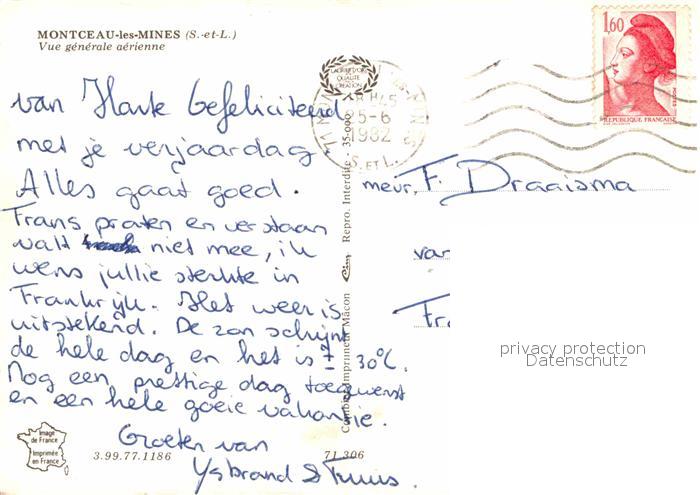 MONTCEAU-les-MINES (S.-et-L.)
Vue générale aérienne
van Harte Gefeliciteerd
met je verjaardag
Alles gaat goed.
Frans praten en verstaan
valt niet mee, ik
wens jullie sterkte in
Frankrijk. Het weer is
uitstekend. De zon schijnt
de hele dag en het is ± 30°C.
Nog een prettige dag toegewenst
en een hele goeie vakantie.
Groeten van
Ysbrand &
Image
de France
Imprimée
en France
3.99.77.1186
71.306
Combier Imprimeur Mâcon
Repro. Interdite - 35-000
25-6
1982
S. ET L.
1,60
POSTES
REPUBLIQUE FRANÇAISE
mevr. F. Draaisma
var
Fr
privacy protection
Datenschutz